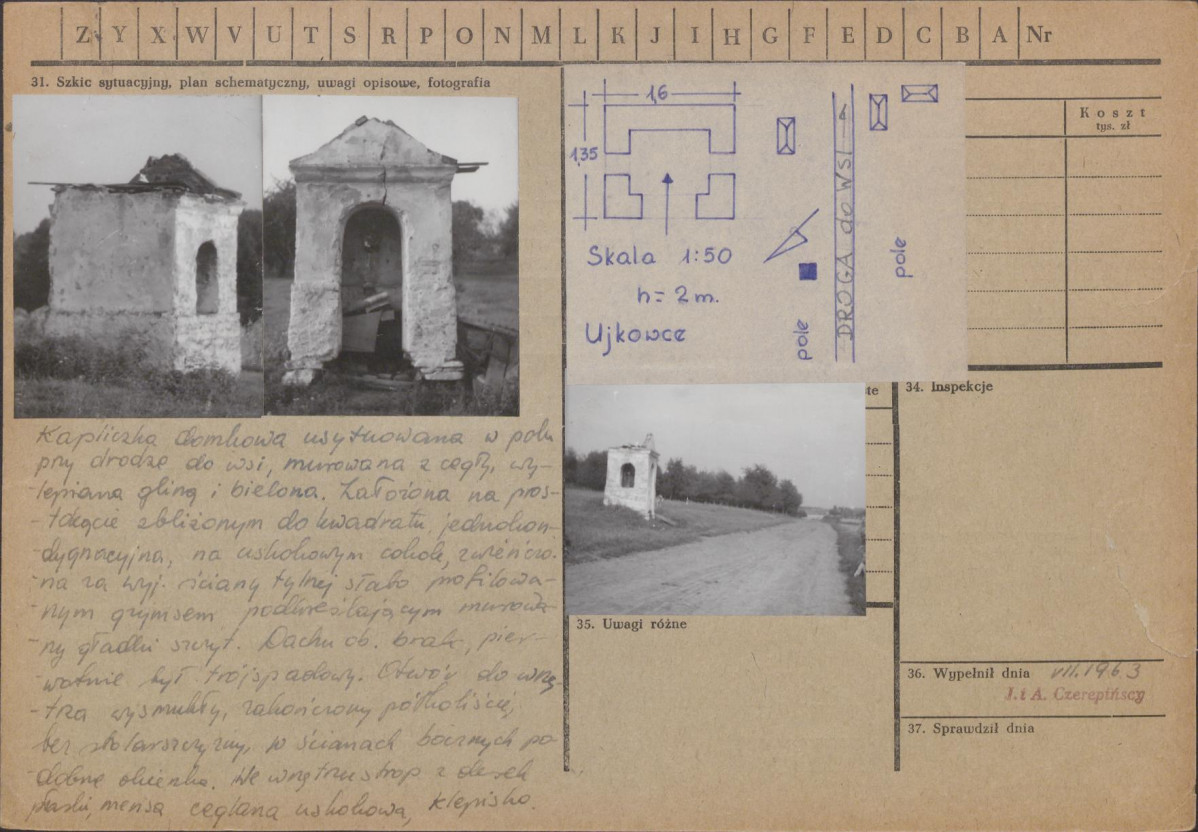 Z Y X W V U T S R P O N M L K J I H G F E D C B A Nr
31. Szkic sytuacyjny, plan schematyczny, uwagi opisowe, fotografia
Kapliczka domkowa usytuowana w polu
przy drodze do wsi, murowana z cegły, wy-
lepiana gliną i bielona. Założona na pros-
-tokącie zbliżonym do kwadratu, jednokon-
dygnacyjna, na uskokowym cokole, zwieńczo-
-na za wyj. ściany tylnej słabo profilowa-
-nym gzymsem podkreślającym murowa-
-ny gładki szczyt. Dachu ob. brak, pier-
-wotnie był trójspadowy. Otwór do wnę-
-trza wysmukły, zakończony półkoliście,
bez stolarszczyzny, w ścianach bocznych po-
-dobne okienka. We wnętrzu strop z desek
płaski, mensa ceglana uskokowa, klepisko.
1,6
1,35
Skala 1:50
h = 2 m.
Ujkowce
pole
DROGA do WSI
pole
Koszt
tys. zł
te
34. Inspekcje
35. Uwagi różne
36. Wypełnił dnia VII.1963
J. i A. Czerepińscy
37. Sprawdził dnia